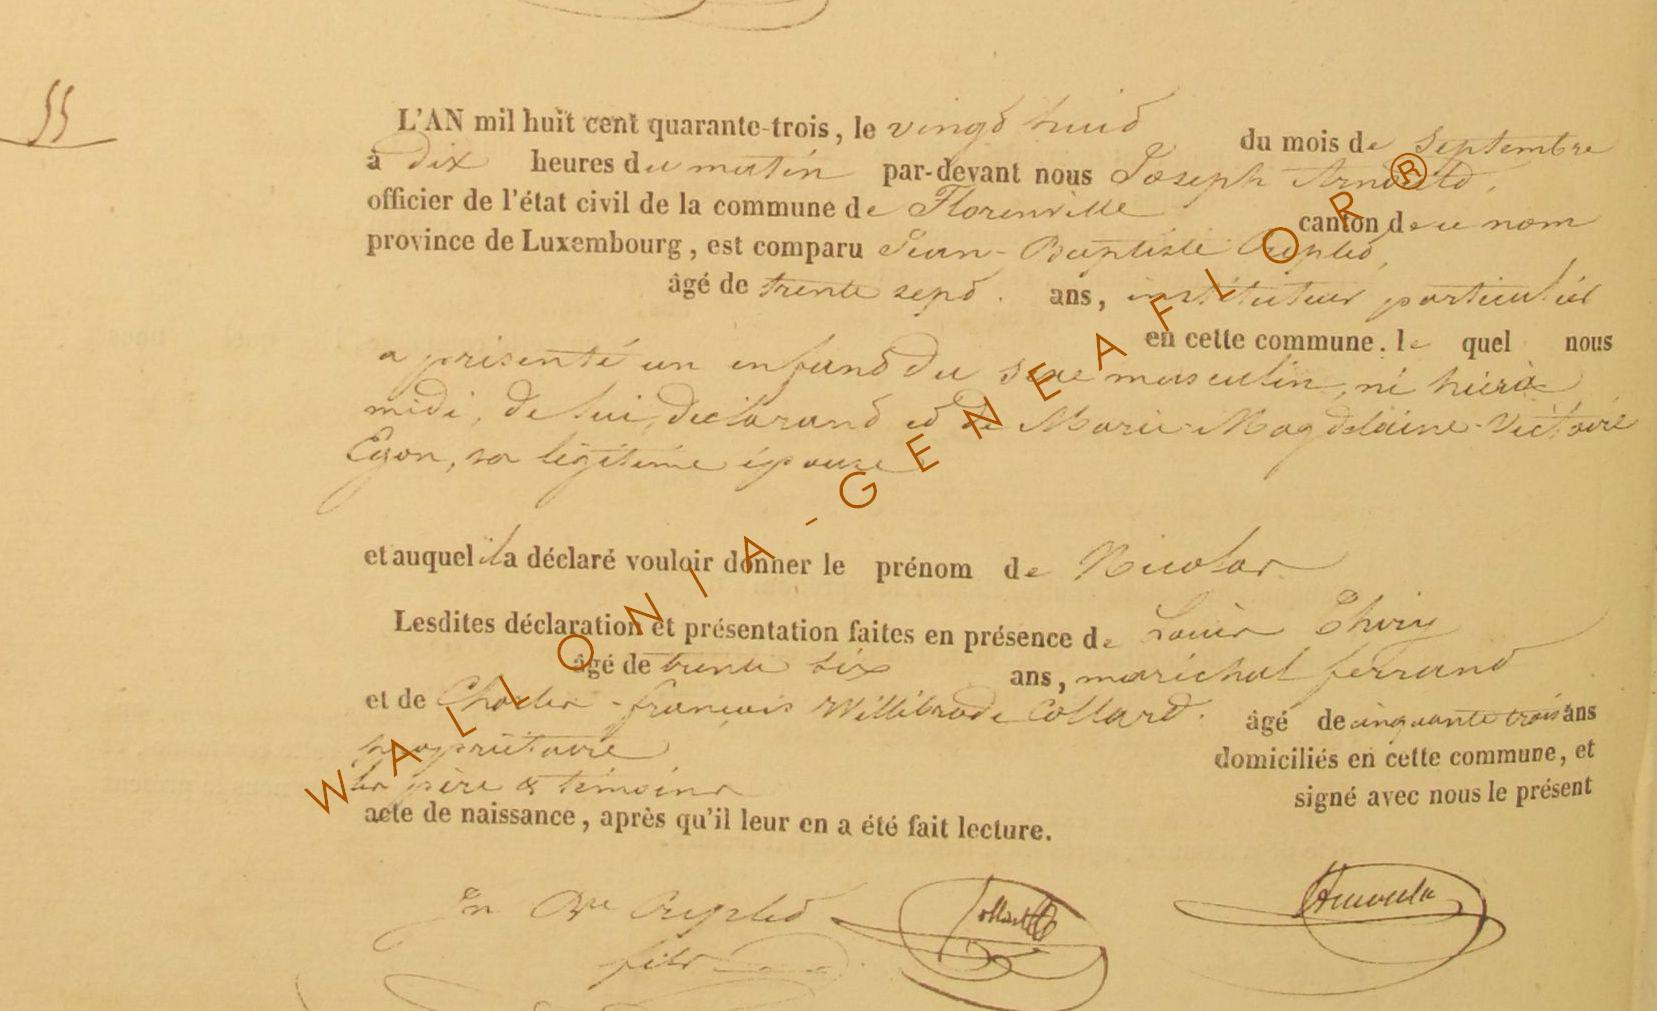 55
L'AN mil huit cent quarante-trois, le vingt huit du mois de Septembre
à dix heures du matin par-devant nous Joseph Arnould,
officier de l'état civil de la commune de Florenville canton de ce nom
province de Luxembourg, est comparu Jean-Baptiste
âgé de trente sept ans, instituteur particulier
en cette commune. le quel nous
a présenté un enfant du sexe masculin, né hier à
midi, de lui, déclarant et de Marie-Magdelaine-Victoire
Egon, sa légitime épouse
et auquel il a déclaré vouloir donner le prénom de Nicolas
Lesdites déclaration et présentation faites en présence de Louis Thiry
âgé de trente six ans, maréchal ferrant
et de Charles-françois Willibrode Collard. âgé de cinquante trois ans
propriétaire domiciliés en cette commune, et
les père & témoins signé avec nous le présent
acte de naissance, après qu'il leur en a été fait lecture.
Jn Bte
fils
WALLONIA-GENEAFLOR®